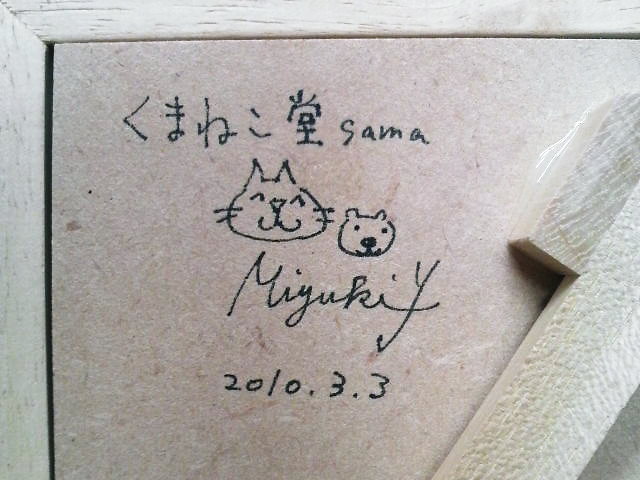 くまねこ堂 sama
Miyuki Y
2010.3.3